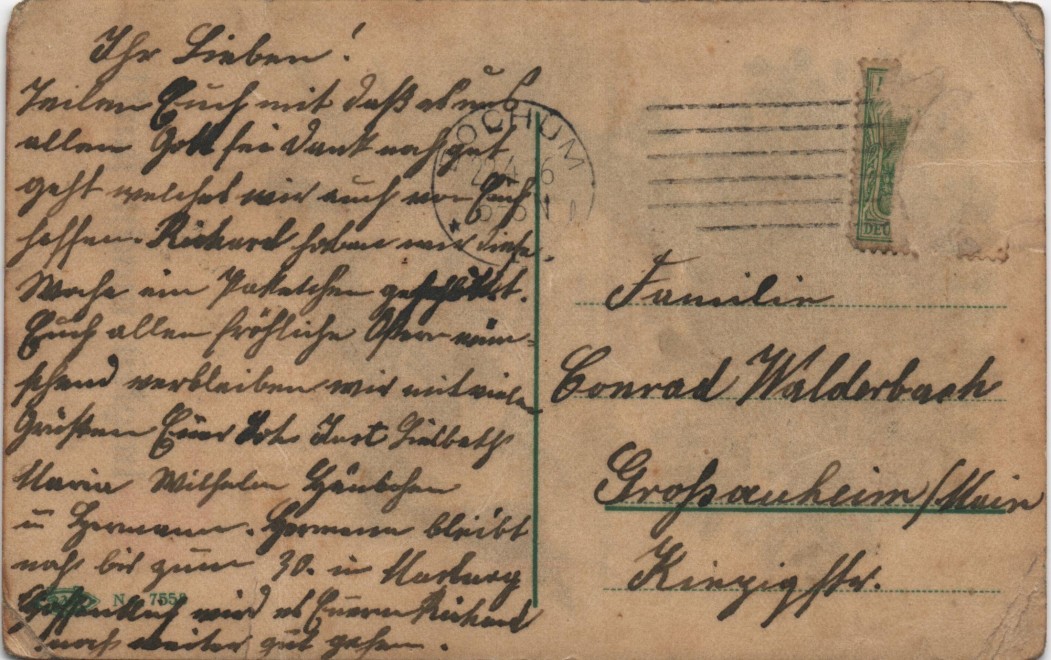 Ihr Lieben!
Teilen Euch mit daß es uns
allen Gott sei Dank noch gut
geht welches wir auch von Euch
hoffen. Richard haben wir diese
Woche ein Paketchen geschickt.
Euch allen fröhliche Ostern wün-
schend verbleiben wir mit vielen
Grüßen Euer
Maria Wilhelm Hänschen
u Hermann. Hermann bleibt
noch bis zum 30. in Marburg
Hoffentlich wird es Euerm Richard
noch weiter gut gehen.
BOCHUM
N 755
DEU
Familie
Conrad Walderbach
Großauheim/Main
Kinzigstr.